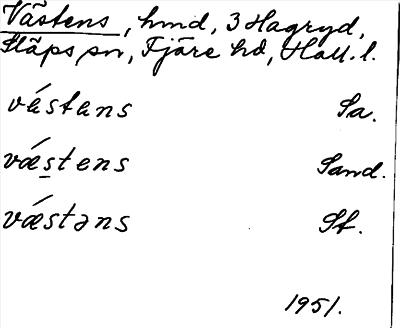 Västens, hmd, 3 Hagryd,
Släps sn, Fjäre hd, Hall. l.
vä́stens Sa.
vǽs̱tens Sand.
vǽstəns Sf.
1951.